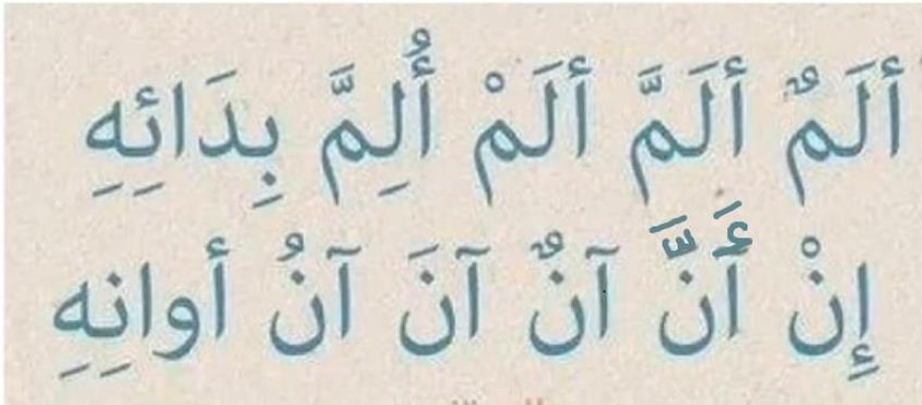 أَلَمٌ أَلَمَّ أَلَمْ أُلِمَّ بِدَائِهِ
إِنْ أَنَّ آنٌ آنَ آنُ أوانِهِ